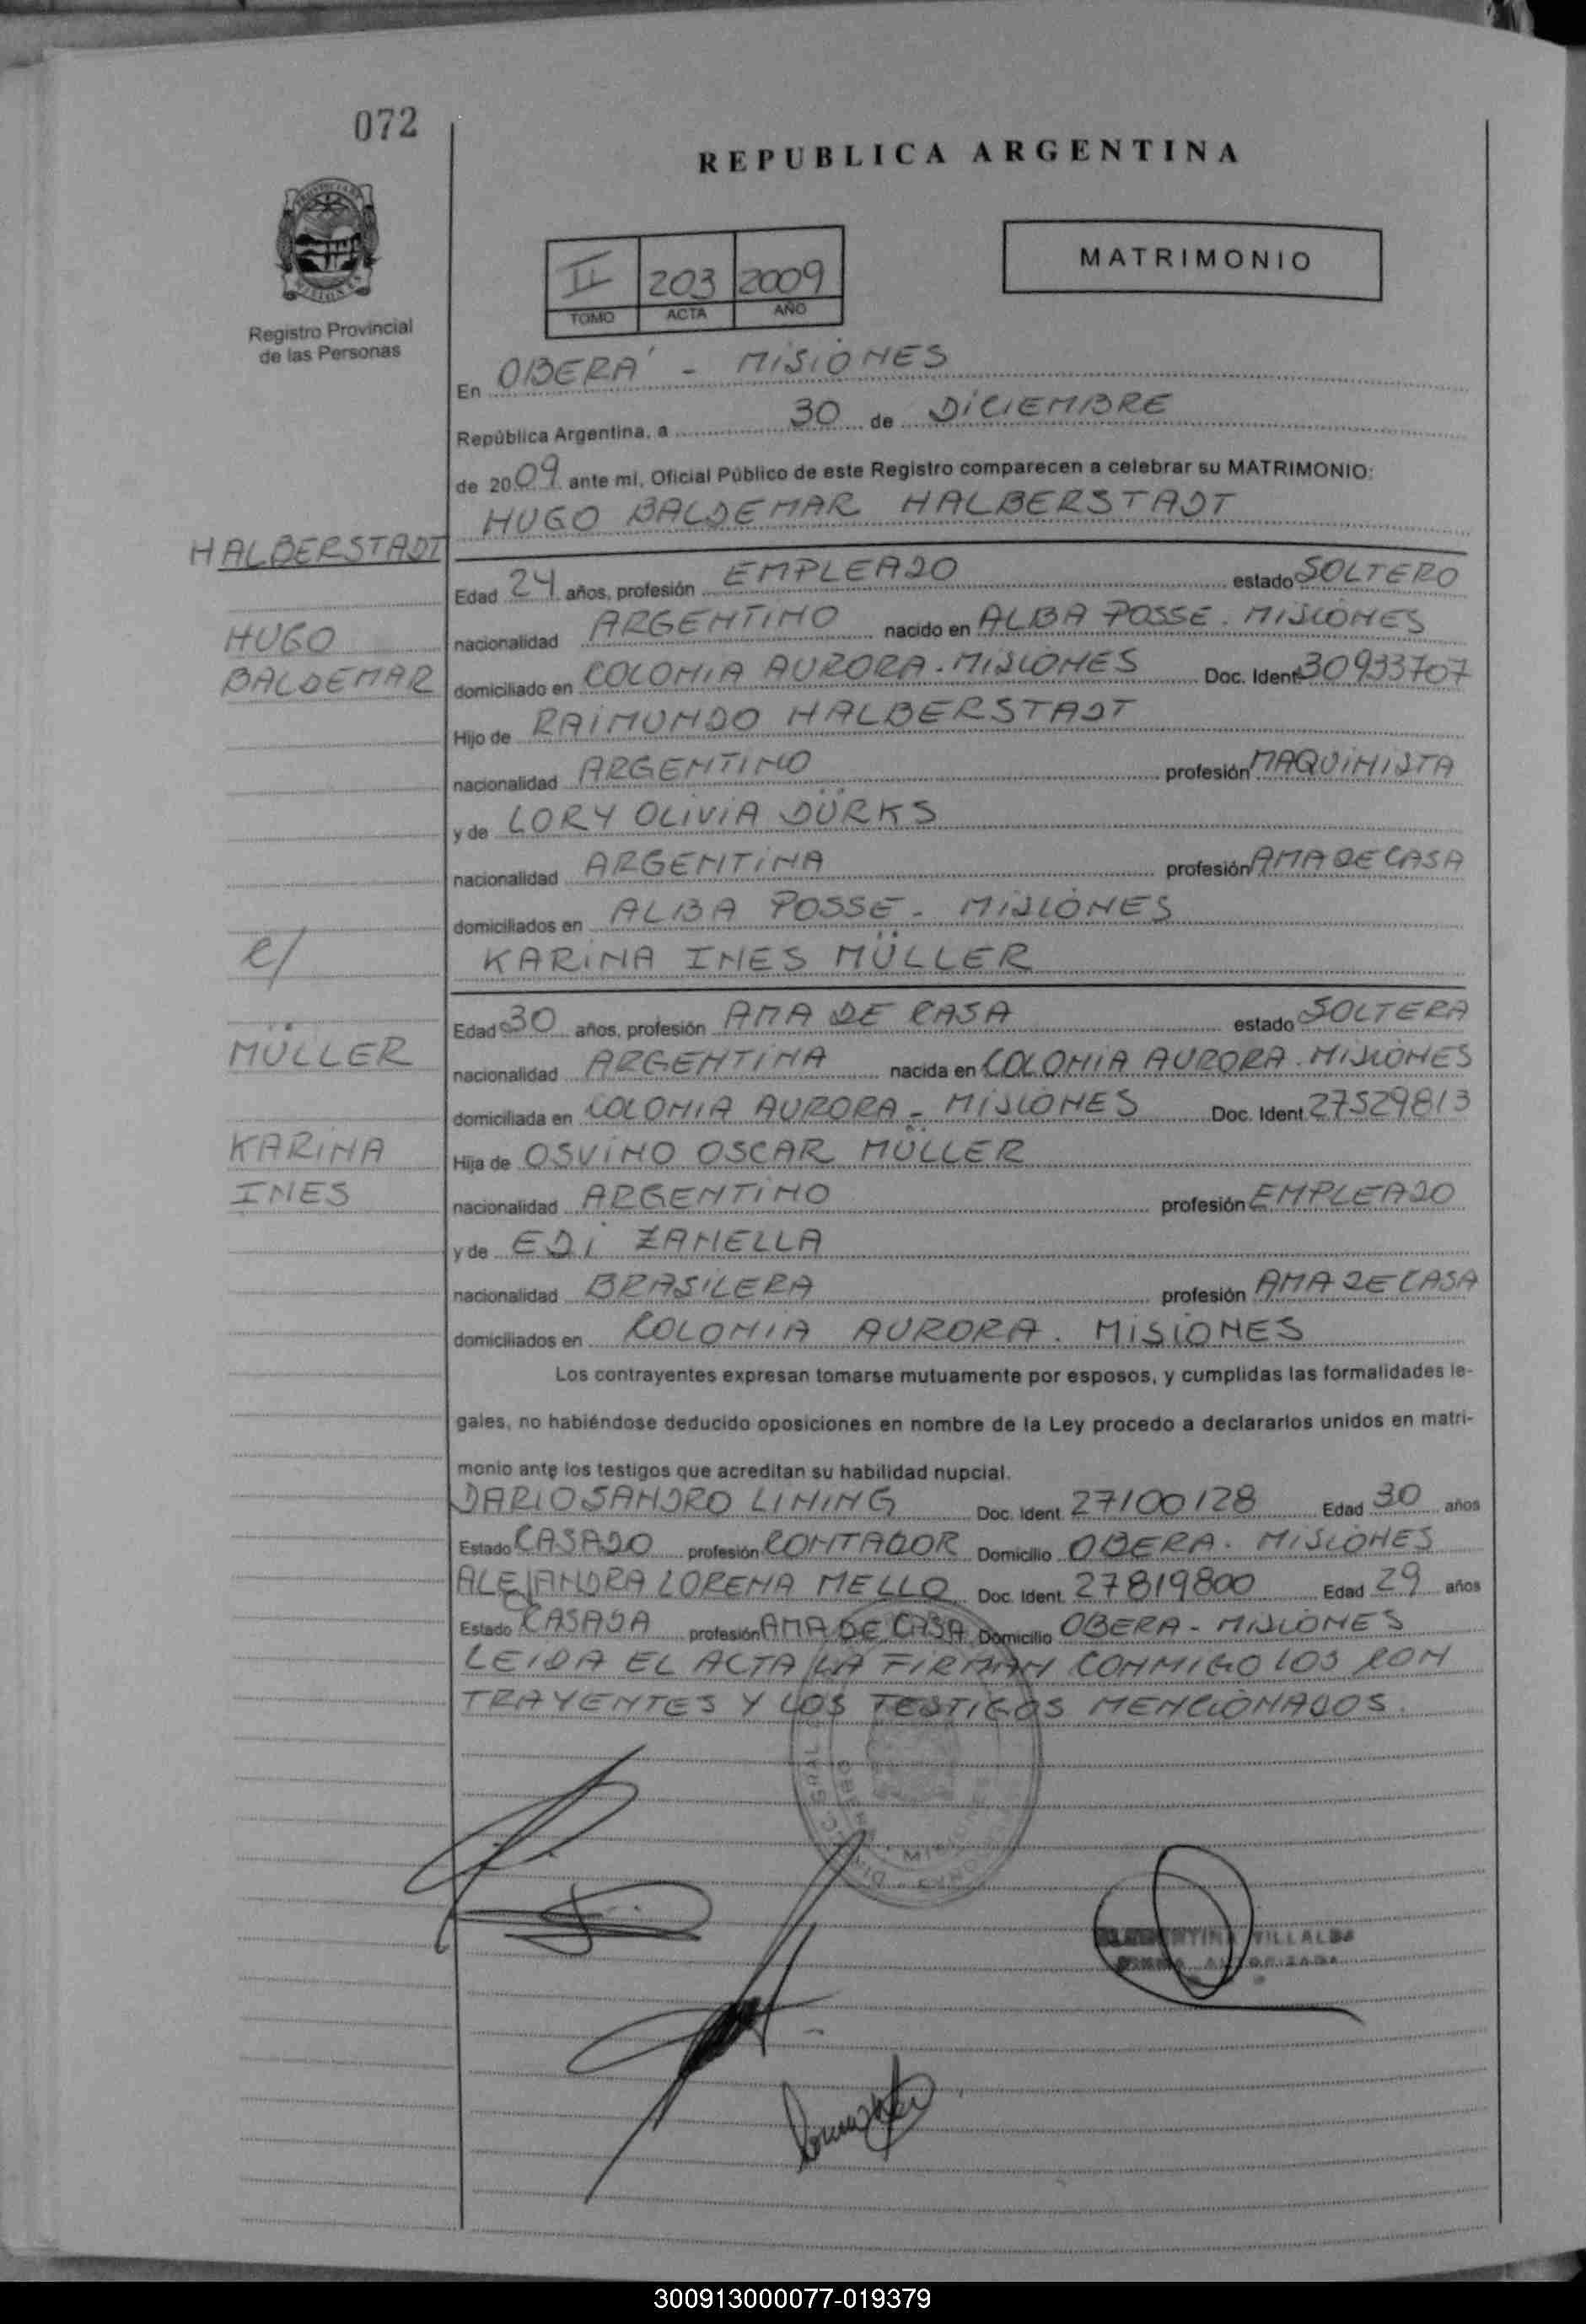 072
REPUBLICA ARGENTINA
MATRIMONIO
II 203 2009
TOMO ACTA AÑO
Registro Provincial
de las Personas
En OBERA' - MISIONES
República Argentina, a 30 de DICIEMBRE
de 2009 ante mi, Oficial Público de este Registro comparecen a celebrar su MATRIMONIO:
HUGO BALDEMAR HALBERSTADT
HALBERSTADT
Edad 24 años, profesión EMPLEADO estado SOLTERO
HUGO
nacionalidad ARGENTINO nacido en ALBA POSSE. MISIONES
BALDEMAR
domiciliado en COLONIA AURORA. MISIONES Doc. Ident. 30933707
Hijo de RAIMUNDO HALBERSTADT
nacionalidad ARGENTINO profesión MAQUINISTA
y de LORY OLIVIA DÜRKS
nacionalidad ARGENTINA profesión AMA DE CASA
domiciliados en ALBA POSSE - MISIONES
c/
KARINA INES MÜLLER
Edad 30 años, profesión AMA DE CASA estado SOLTERA
MÜLLER
nacionalidad ARGENTINA nacida en COLONIA AURORA. MISIONES
domiciliada en COLONIA AURORA - MISIONES Doc. Ident. 27529813
KARINA
Hija de OSVINO OSCAR MÜLLER
INES
nacionalidad ARGENTINO profesión EMPLEADO
y de EDI ZANELLA
nacionalidad BRASILERA profesión AMA DE CASA
domiciliados en COLONIA AURORA. MISIONES
Los contrayentes expresan tomarse mutuamente por esposos, y cumplidas las formalidades le-
gales, no habiéndose deducido oposiciones en nombre de la Ley procedo a declararlos unidos en matri-
monio ante los testigos que acreditan su habilidad nupcial.
DARIO SANDRO LINING Doc. Ident. 27100128 Edad 30 años
Estado CASADO profesión CONTADOR Domicilio OBERA. MISIONES
ALEJANDRA LORENA MELLO Doc. Ident. 27819800 Edad 29 años
Estado CASADA profesión AMA DE CASA Domicilio OBERA - MISIONES
LEIDA EL ACTA LA FIRMAN CONMIGO LOS CON
TRAYENTES Y LOS TESTIGOS MENCIONADOS.
VILLALBA
300913000077-019379